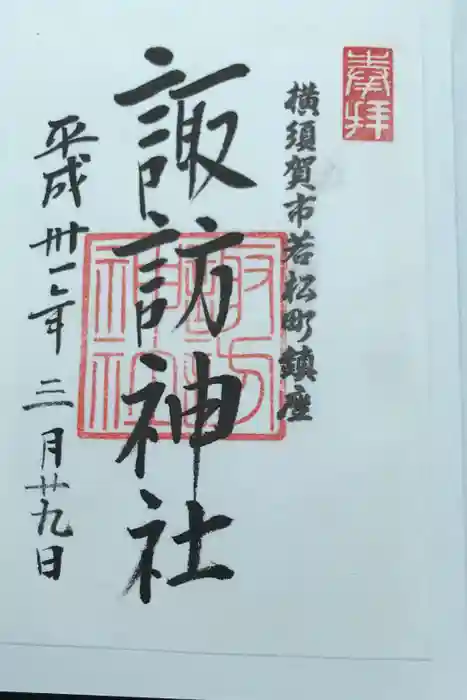 奉拝
横須賀市若松町鎮座
諏訪神社
諏訪神社
平成卅一年三月廿九日